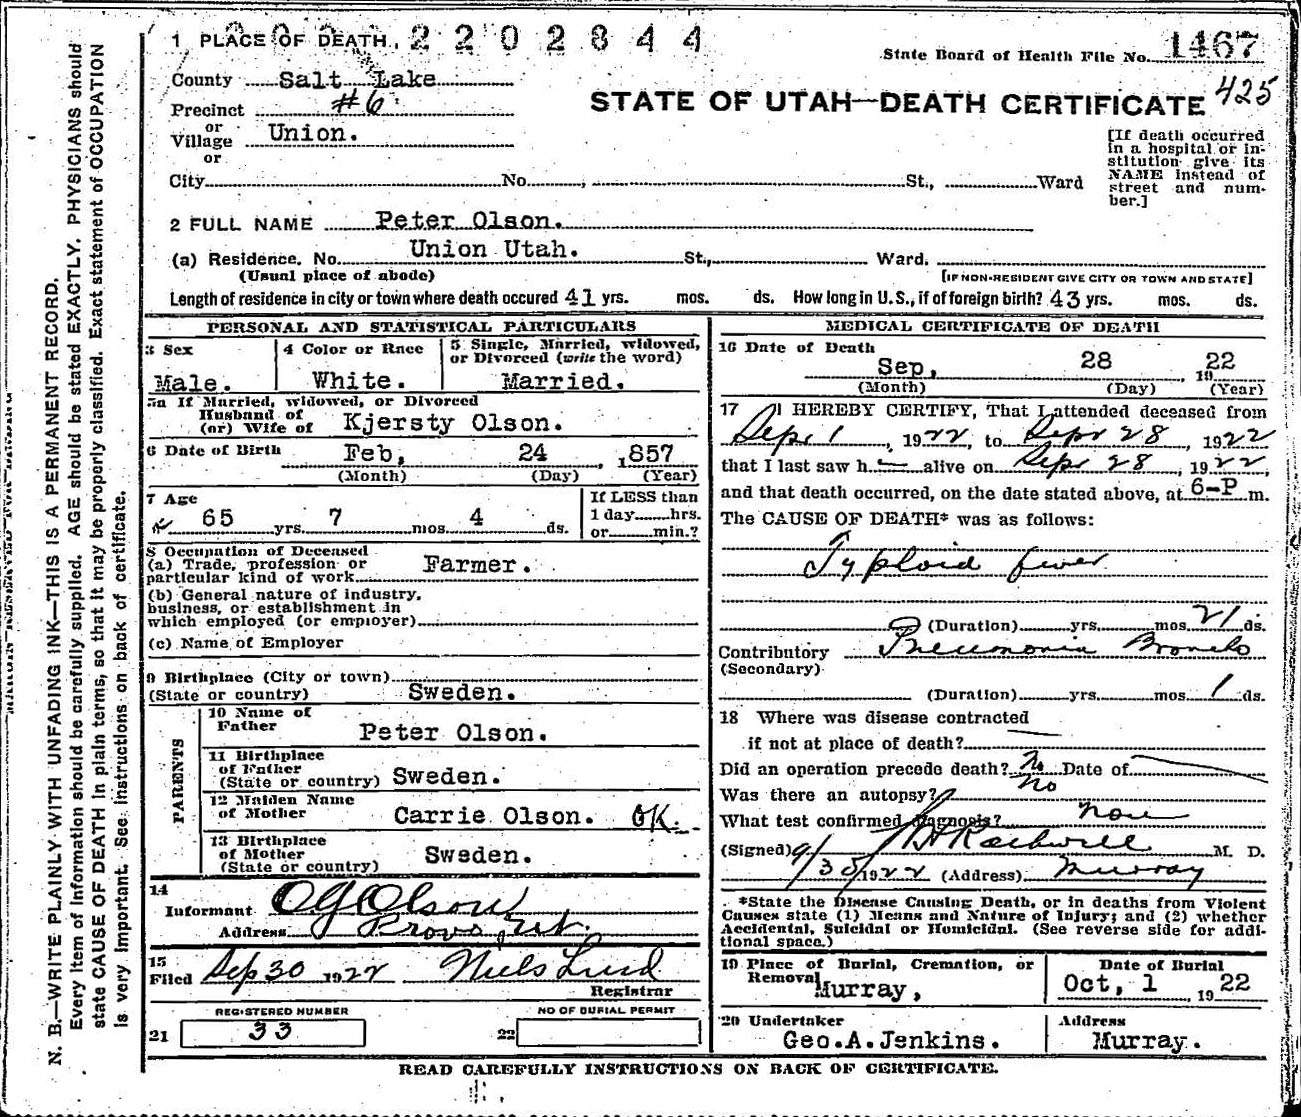 1 PLACE OF DEATH. 2202844
State Board of Health File No. 1467
County Salt Lake
425
Precinct #6
STATE OF UTAH—DEATH CERTIFICATE
or
Village Union.
or
[If death occurred
in a hospital or in-
stitution give its
NAME instead of
street and num-
ber.]
City No. , St., Ward
2 FULL NAME Peter Olson.
(a) Residence. No. Union Utah. St., Ward.
(Usual place of abode) [IF NON-RESIDENT GIVE CITY OR TOWN AND STATE]
Length of residence in city or town where death occured 41 yrs. mos. ds. How long in U.S., if of foreign birth? 43 yrs. mos. ds.
PERSONAL AND STATISTICAL PARTICULARS
3 Sex
Male.
4 Color or Race
White.
5 Single, Married, widowed,
or Divorced (write the word)
Married.
5a If Married, widowed, or Divorced
Husband of
(or) Wife of Kjersty Olson.
6 Date of Birth Feb, 24 , 1857
(Month) (Day) (Year)
7 Age
65 yrs. 7 mos. 4 ds.
If LESS than
1 day hrs.
or min.?
8 Occupation of Deceased
(a) Trade, profession or
particular kind of work Farmer.
(b) General nature of industry,
business, or establishment in
which employed (or employer)
(c) Name of Employer
9 Birthplace (City or town)
(State or country) Sweden.
PARENTS
10 Name of
Father Peter Olson.
11 Birthplace
of Father
(State or country) Sweden.
12 Maiden Name
of Mother Carrie Olson. OK.
13 Birthplace
of Mother
(State or country) Sweden.
14
Informant O G Olson
Address Provo, Ut.
15
Filed Sep 30 1922 Niels Lind
Registrar
REGISTERED NUMBER
21 33
NO OF BURIAL PERMIT
22
MEDICAL CERTIFICATE OF DEATH
16 Date of Death
Sep, 28 , 1922
(Month) (Day) (Year)
17 I HEREBY CERTIFY, That I attended deceased from
Sept 1 , 1922, to Sept 28 , 1922
that I last saw h alive on Sept 28 , 1922,
and that death occurred, on the date stated above, at 6-P m.
The CAUSE OF DEATH* was as follows:
Typhoid fever
(Duration) yrs. mos. 21 ds.
Contributory Pneumonia Broncho
(Secondary)
(Duration) yrs. mos. 1 ds.
18 Where was disease contracted
if not at place of death?
Did an operation precede death? No Date of
Was there an autopsy? No
What test confirmed diagnosis? None
(Signed) Rockwell M. D.
9/30/1922 (Address) Murray
*State the Disease Causing Death, or in deaths from Violent
Causes state (1) Means and Nature of Injury; and (2) whether
Accidental, Suicidal or Homicidal. (See reverse side for addi-
tional space.)
19 Place of Burial, Cremation, or
Removal Murray,
Date of Burial
Oct, 1 , 1922
20 Undertaker
Geo.A.Jenkins.
Address
Murray.
READ CAREFULLY INSTRUCTIONS ON BACK OF CERTIFICATE.
N. B.—WRITE PLAINLY WITH UNFADING INK—THIS IS A PERMANENT RECORD.
Every item of information should be carefully supplied. AGE should be stated EXACTLY. PHYSICIANS should
state CAUSE OF DEATH in plain terms, so that it may be properly classified. Exact statement of OCCUPATION
is very important. See instructions on back of certificate.